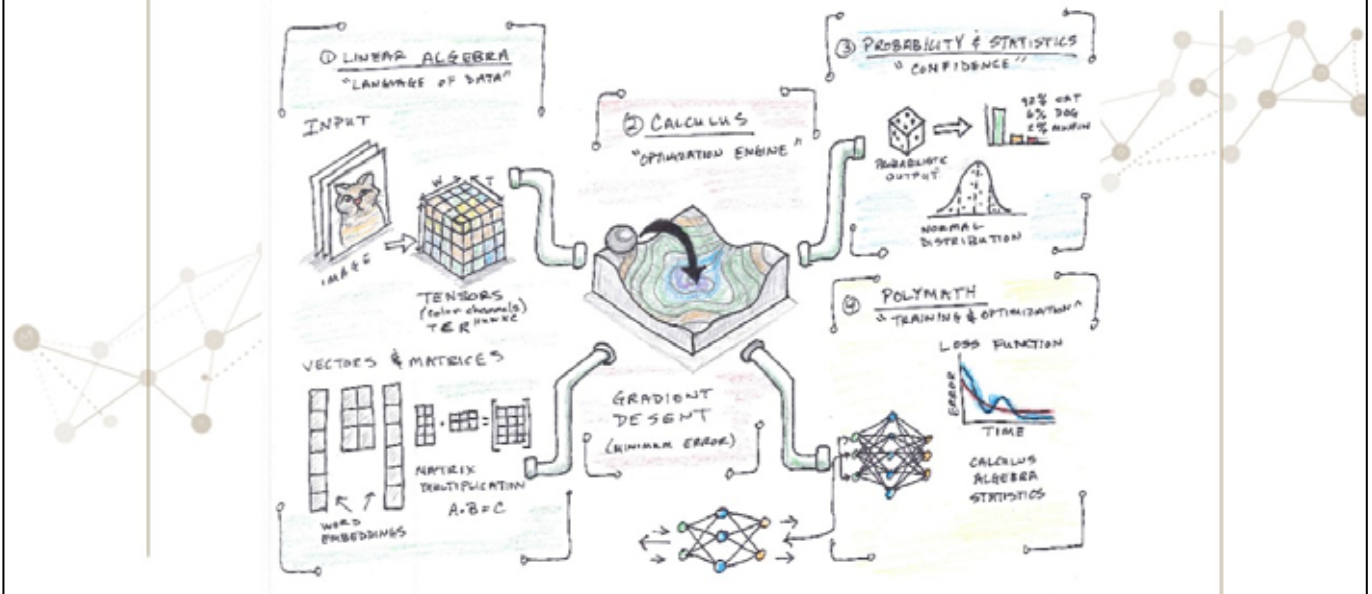 ① LINEAR ALGEBRA
"LANGUAGE OF DATA"
INPUT
IMAGE
W T
TENSORS
(color channels)
T ∈ R^HxWxC
VECTORS & MATRICES
WORD
EMBEDDINGS
MATRIX
MULTIPLICATION
A·B=C
② CALCULUS
"OPTIMIZATION ENGINE"
GRADIENT
DESENT
(MINIMUM ERROR)
③ PROBABILITY & STATISTICS
"CONFIDENCE"
92% CAT
6% DOG
2% MUFFIN
PROBABILISTIC
OUTPUT
NORMAL
DISTRIBUTION
④ POLYMATH
"TRAINING & OPTIMIZATION"
LOSS FUNCTION
ERROR
TIME
CALCULUS
ALGEBRA
STATISTICS